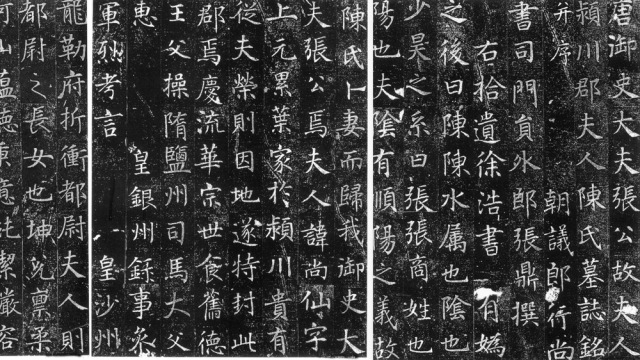 唐御史大夫張公故夫人
潁川郡夫人陳氏墓誌銘
并序 朝議郎行尚
書司門員外郎張鼎撰
右拾遺徐浩書 有媯
之後曰陳陳水属也陰也
少昊之系曰張張商姓也
陽也夫陰有順陽之義故
陳氏卜妻而歸我御史大
夫張公焉夫人諱尚仙字
上元累葉家於潁川貴有
從夫榮則因地遂特封此
郡焉慶流華宗世食舊德
王父操隋鹽州司馬大父
惠 皇銀州録事参
軍烈考言 皇沙州
龍勒府折衝都尉夫人則
都尉之長女也坤兌禀柔
河山蘊德潔嚴容